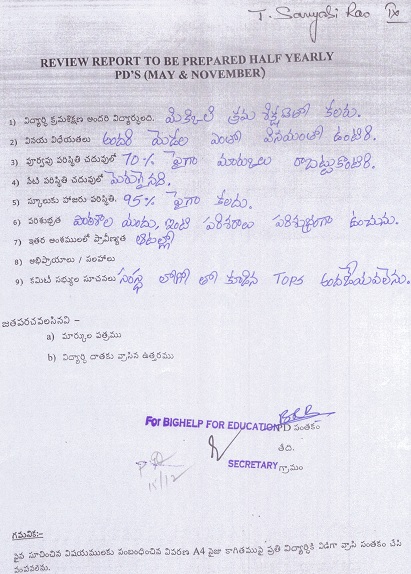 T. Sanyasi Rao IX
REVIEW REPORT TO BE PREPARED HALF YEARLY
PD'S (MAY & NOVEMBER)
1) విద్యార్ధి క్రమశిక్షణ అందరి విద్యార్ధులది. మిక్కిలి క్రమ శిక్షణతో కలరు.
2) వినయ విధేయతలు అందరి యెడల ఎంతో వినయంతో ఉంటారు.
3) పూర్వపు పరిస్థితి చదువులో 70% పైగా మార్కులు రాబట్టుకొంటారు.
4) నేటి పరిస్థితి చదువులో మెరుగైనది.
5) స్కూలుకు హాజరు పరిస్థితి. 95% పైగా కలదు.
6) పరిశుభ్రత పాఠశాల యందు, ఇంటి పరిసరాలు పరిశుభ్రంగా ఉంచును.
7) ఇతర అంశములలో ప్రావీణ్యత ఆటల్లో
8) అభిప్రాయాలు / సలహాలు
9) కమిటీ సభ్యుల సూచనలు సంస్థ లోగో తో కూడిన TOPS అందజేయవలెను.
జతపరచవలసినవి –
a) మార్కుల పత్రము
b) విద్యార్ధి దాతకు వ్రాసిన ఉత్తరము
For BIGHELP FOR EDUCATION PD సంతకం
తేది.
SECRETARY గ్రామం
15/12
గమనిక:-
పైన సూచించిన విషయములకు సంబంధించిన వివరణ A4 సైజు కాగితముపై ప్రతి విద్యార్ధికి విడిగా వ్రాసి సంతకం చేసి
పంపవలెను.